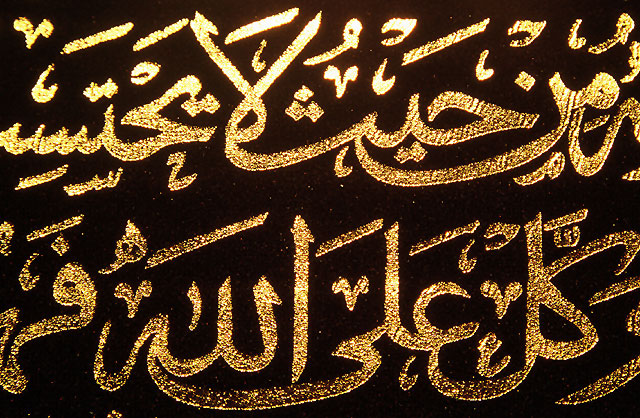 مِنْ حَيْثُ لَا يَحْتَسِ
كَّلْ عَلَى اللَّهِ فَهُ